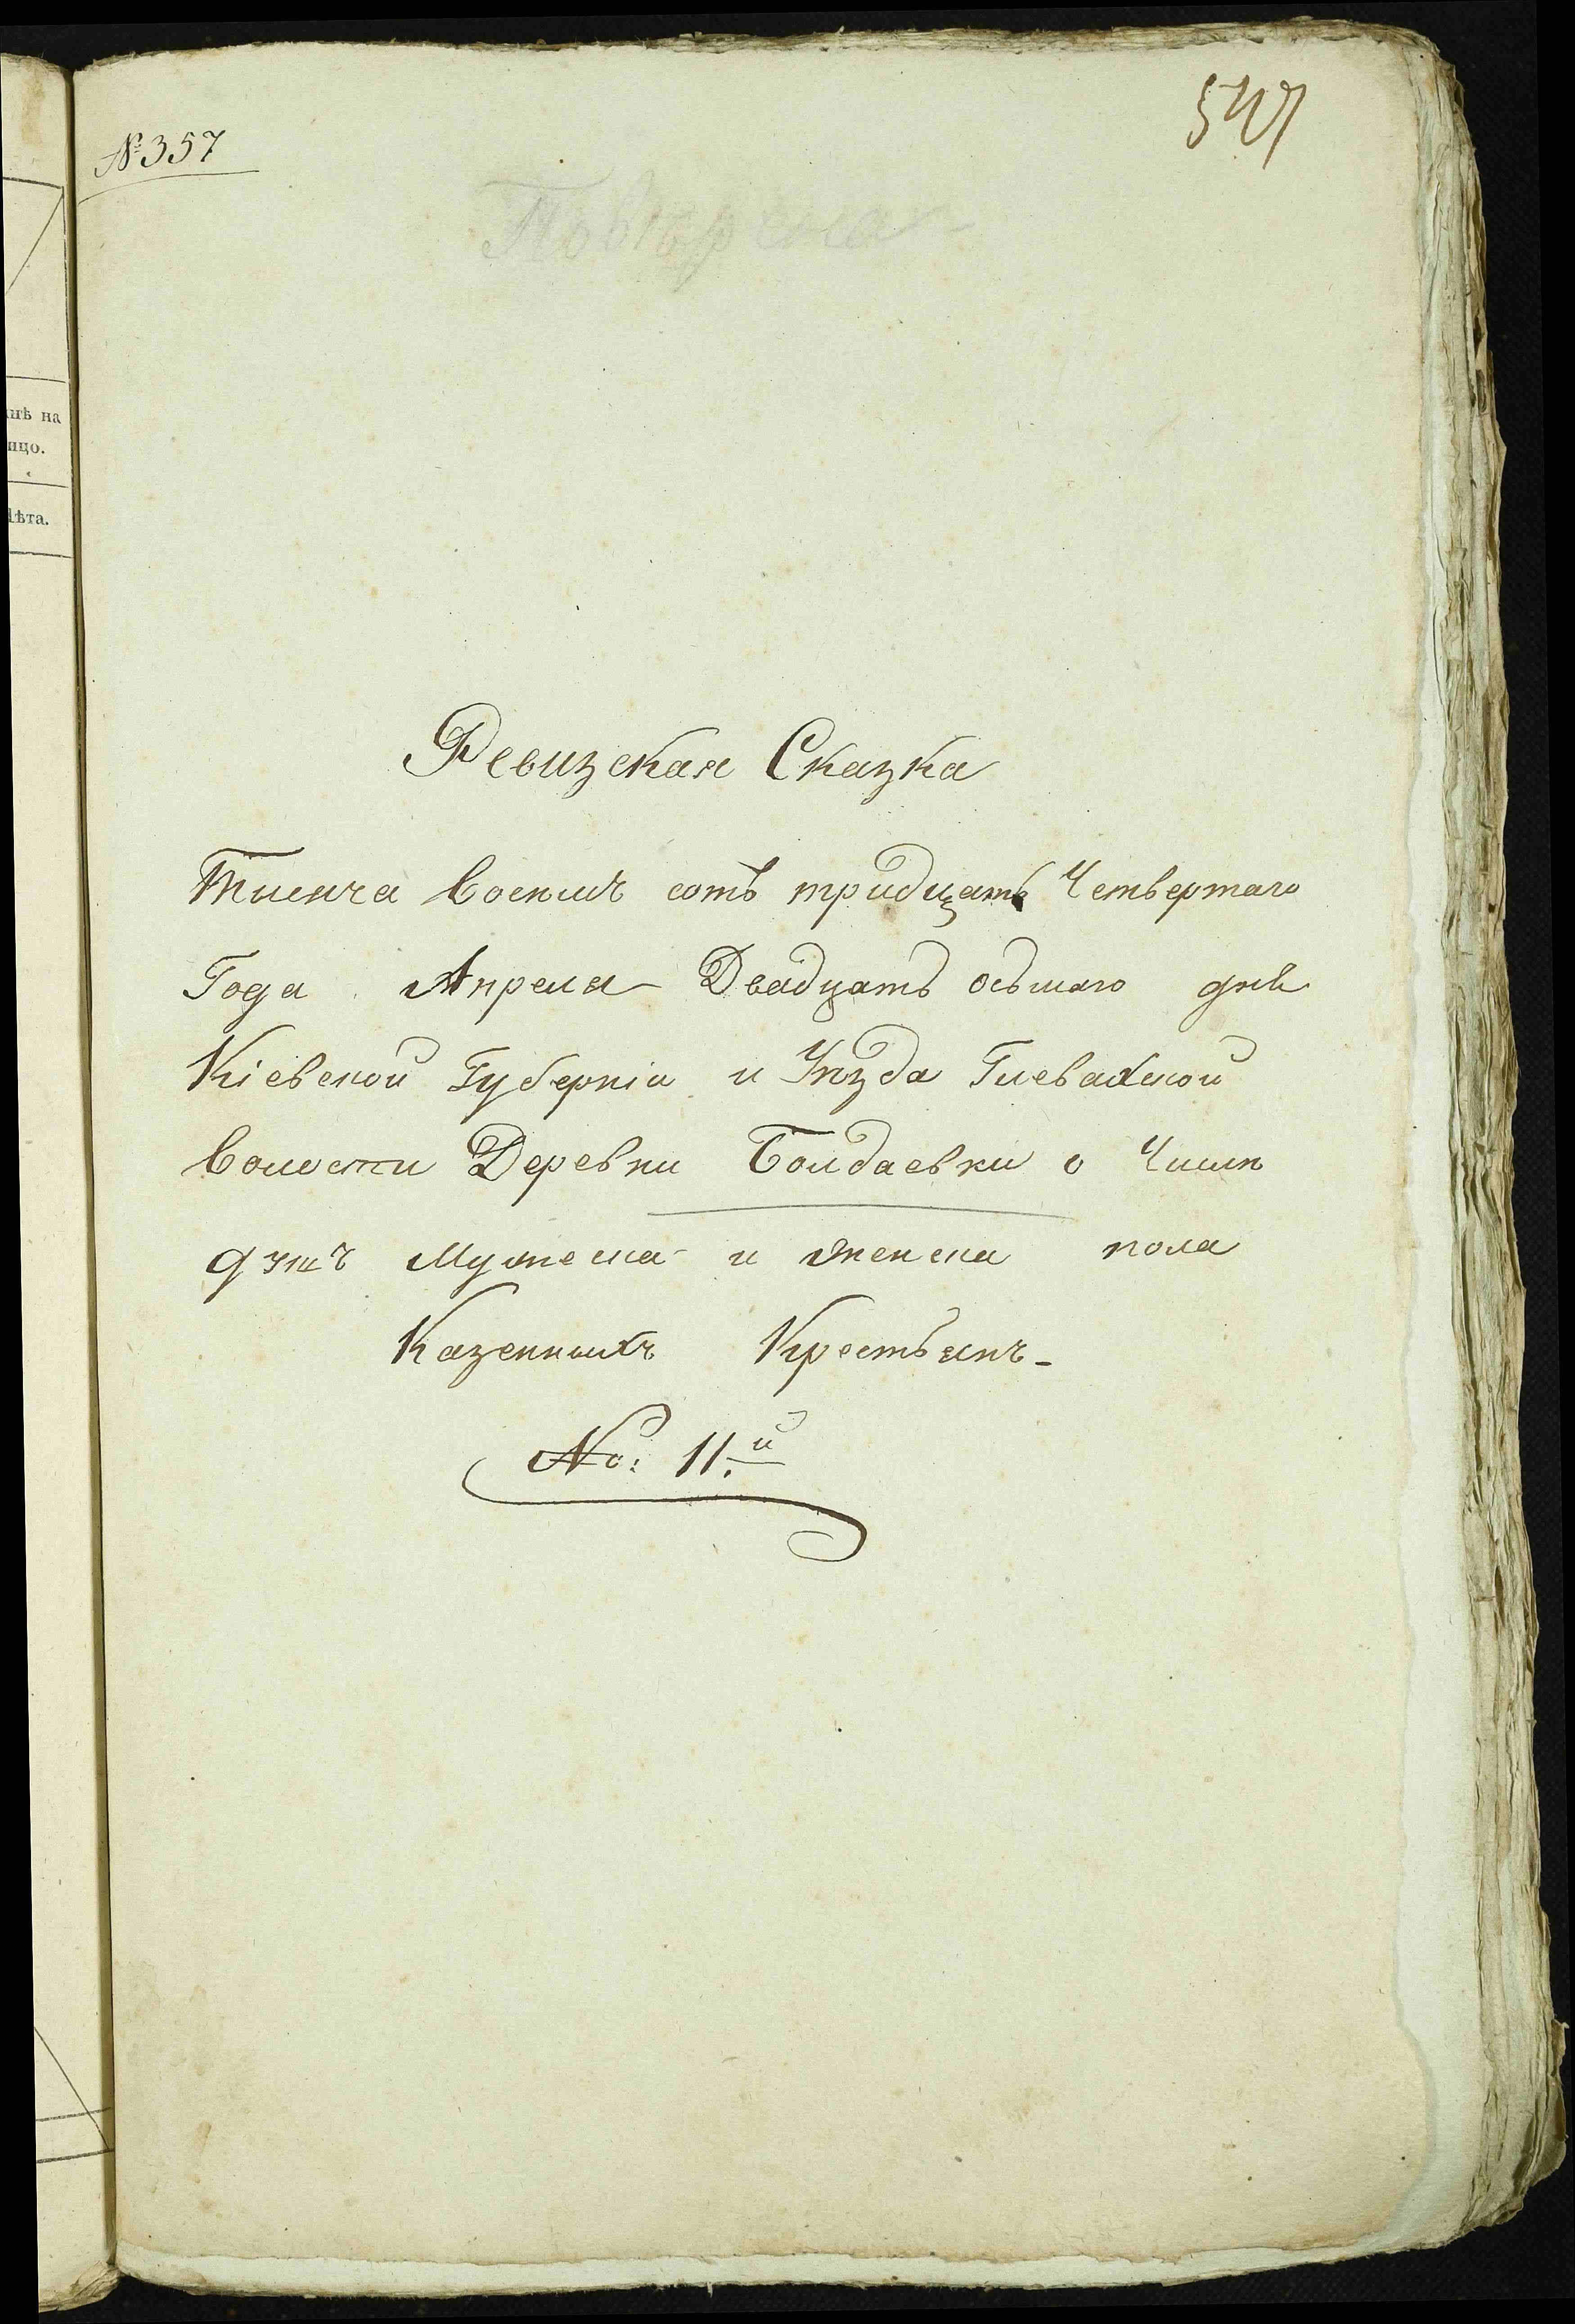 № 357
547
Повѣрена
Ревизская Сказка
Тисяча Восемъ сотъ тридцать Четвертаго
Года Апреля Двадцать осьмаго дня
Кіевской Губерніи и Уѣзда Глевахской
Волости Деревни Болдаевки о Числѣ
душъ Мужеска и женска пола
Казенныхъ Крестьянъ
No: 11.й
нѣ на
ицо.
Лѣта.